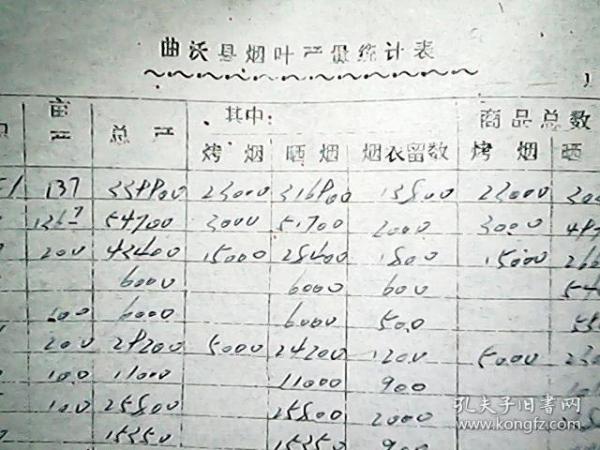 曲沃县烟叶产量统计表
亩产 总产 其中: 商品总数
烤烟 晒烟 烟农留数 烤烟 晒
137 339800 23000 316800 15800 23000
136.7 54700 3000 51700 2000 3000
200 43400 15000 28400 1800 15000
6000 6000 600
100 6000 6000 500
200 29200 5000 24200 1200 5000
100 11000 11000 900
100 25800 25800 2000
15350 15350 900
孔夫子旧书网
www.kongfz.com